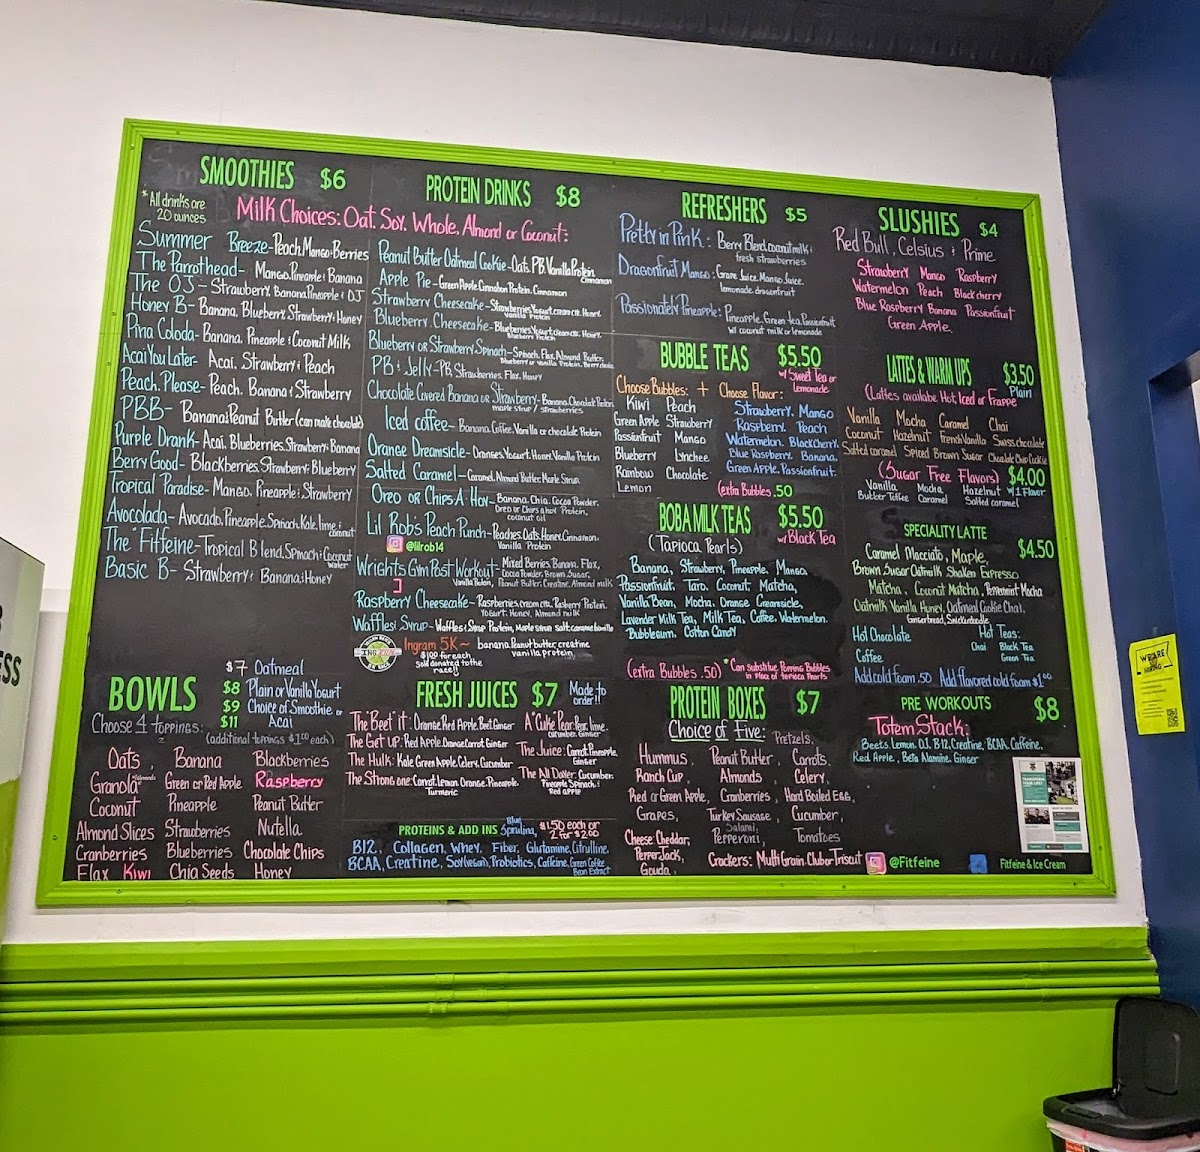 SMOOTHIES $6
* All drinks are
20 ounces
Milk Choices: Oat, Soy, Whole, Almond or Coconut:
Summer Breeze- Peach, Mango & Berries
The Parrothead- Mango, Pineapple & Banana
The OJ- Strawberry, Banana, Pineapple & OJ
Honey B- Banana, Blueberry, Strawberry & Honey
Pina Colada- Banana, Pineapple & Coconut Milk
Acai You Later- Acai, Strawberry & Peach
Peach, Please- Peach, Banana & Strawberry
PBB- Banana & Peanut Butter (can make chocolate)
Purple Drank- Acai, Blueberries, Strawberry & Banana
Berry Good- Blackberries, Strawberry & Blueberry
Tropical Paradise- Mango, Pineapple & Strawberry
Avocolada- Avocado, Pineapple, Spinach, Kale, lime &
coconut
The Fitfeine- Tropical Blend, Spinach & Coconut
water
Basic B- Strawberry & Banana & Honey
PROTEIN DRINKS $8
Peanut Butter Oatmeal Cookie- Oats, PB, Vanilla Protein
Cinnamon
Apple Pie- Green Apple, Cinnabon Protein, Cinnamon
Strawberry Cheesecake- Strawberries, Yogurt, cream chz, Honey,
Vanilla Protein
Blueberry Cheesecake- Blueberries, Yogurt, cream chz, Honey,
Blueberry Protein
Blueberry or Strawberry Spinach- Spinach, Flax, Almond Butter,
Blueberry or Vanilla Protein, Berry choice
PB & Jelly- PB, Strawberries, Flax, Honey
Chocolate Covered Banana or Strawberry- Banana, Chocolate Protein
maple syrup / strawberries
Iced coffee- Banana, Coffee, Vanilla or chocolate Protein
Orange Dreamsicle- Oranges, Yogurt, Honey, Vanilla Protein
Salted Caramel- Caramel, Almond Butter, Maple Syrup
Oreo or Chips A Hoy- Banana, Chia, Cocoa Powder,
Oreo or Chips a hoy Protein,
coconut oil
Lil Rob's Peach Punch- Peaches, Oats, Honey, Cinnamon,
Vanilla Protein
@lilrob14
Wrights Gym Post Workout- Mixed Berries, Banana, Flax,
Cocoa Powder, Brown Sugar,
Vanilla Protein, Peanut Butter, Creatine, Almond milk
Raspberry Cheesecake- Raspberries, cream chz, Rasberry Protein,
Yogurt, Honey, Almond milk
Waffles & Syrup- Waffles & Syrup Protein, Maple syrup, salt, caramel, vanilla
Ingram 5K~ banana, peanut butter, creatine
vanilla protein
$1.00 for each
sold donated to the
race!!
REFRESHERS $5
Pretty in Pink: Berry Blend, coconut milk &
fresh strawberries
Dragonfruit Mango: Grape Juice, Mango Juice,
lemonade, dragonfruit
Passionately Pineapple: Pineapple, Green tea, Passionfruit
w/ coconut milk or lemonade
BUBBLE TEAS $5.50
w/ Sweet Tea or
Lemonade
Choose Bubbles: + Choose Flavor:
Kiwi Peach
Green Apple Strawberry
Passionfruit Mango
Blueberry Lynchee
Rainbow Chocolate
Lemon
Strawberry, Mango
Raspberry, Peach
Watermelon, Blackcherry,
Blue Raspberry, Banana,
Green Apple, Passionfruit.
(extra Bubbles .50
BOBA MILK TEAS $5.50
(Tapioca Pearls) w/ Black Tea
Banana, Strawberry, Pineapple, Mango,
Passionfruit, Taro, Coconut, Matcha,
Vanilla Bean, Mocha, Orange Creamsicle,
Lavender Milk Tea, Milk Tea, Coffee, Watermelon,
Bubblegum, Cotton Candy
(extra Bubbles .50) * Can substitute Popping Bubbles
in place of tapioca Pearls
SLUSHIES $4
Red Bull, Celsius & Prime
Strawberry Mango Raspberry
Watermelon Peach Black cherry
Blue Raspberry Banana Passionfruit
Green Apple.
LATTES & WARM UPS $3.50
Plain
(Lattes available Hot, Iced or Frappe
Vanilla Mocha Caramel Chai
Coconut Hazelnut French Vanilla Swiss chocolate
Salted caramel Spiced Brown Sugar Chocolate Chip Cookie
(Sugar Free Flavors) $4.00
w/ 1 Flavor
Vanilla Mocha Hazelnut
Butter Toffee Caramel Salted caramel
SPECIALITY LATTE $4.50
Caramel Macciato, Maple,
Brown Sugar Oatmilk Shaken Espresso
Matcha, Coconut Matcha, Peppermint Mocha
Oatmilk Vanilla Honey, Oatmeal Cookie Chai,
Gingerbread, Snickerdoodle
Hot Chocolate
Coffee
Hot Teas:
Chai Black Tea
Green Tea
Add cold foam .50 Add flavored cold foam $1.00
PRE WORKOUTS $8
Totem Stack:
Beets, Lemon, OJ, B12, Creatine, BCAA, Caffeine,
Red Apple, Beta Alamine, Ginger
BOWLS
$7 Oatmeal
$8 Plain or Vanilla Yogurt
$9 Choice of Smoothie or
$11 Acai
Choose 4 toppings: (additional toppings $1.00 each)
Oats, Banana Blackberries
Granola Green or Red Apple Raspberry
Coconut Pineapple Peanut Butter
Almond Slices Strawberries Nutella
Cranberries Blueberries Chocolate Chips
Flax Kiwi Chia Seeds Honey
FRESH JUICES $7 Made to
order!!
The "Beet" it: Orange, Red Apple, Beet, Ginger
The Get UP: Red Apple, Orange, Carrot, Ginger
The Hulk: Kale, Green Apple, Celery, Cucumber
The Strong one: Carrot, Lemon, Orange, Pineapple,
Turmeric
A "Cuke" Pear: Pear, lime,
cucumber, Ginger
The Juice: Carrot, Pineapple,
Ginger
The All Dayer: Cucumber,
Pineapple, Spinach &
Red apple
PROTEINS & ADD INS Blue Spirulina, $1.50 each or
2 for $2.00
B12, Collagen, Whey, Fiber, Glutamine, Citrulline,
BCAA, Creatine, Soy (vegan), Probiotics, Caffeine, Green Coffee
Bean Extract
PROTEIN BOXES $7
Choice of Five: Pretzels,
Hummus, Peanut Butter, Carrots,
Ranch Cup, Almonds, Celery,
Red or Green Apple, Cranberries, Hard Boiled Egg,
Grapes, Turkey Sausage, Cucumber,
Salami,
Cheese: Cheddar, Pepperoni, Tomatoes
PepperJack,
Gouda, Crackers: Multi Grain, Club or Triscuit
@Fitfeine
Fitfeine & Ice Cream
WE ARE
HIRING
ESS